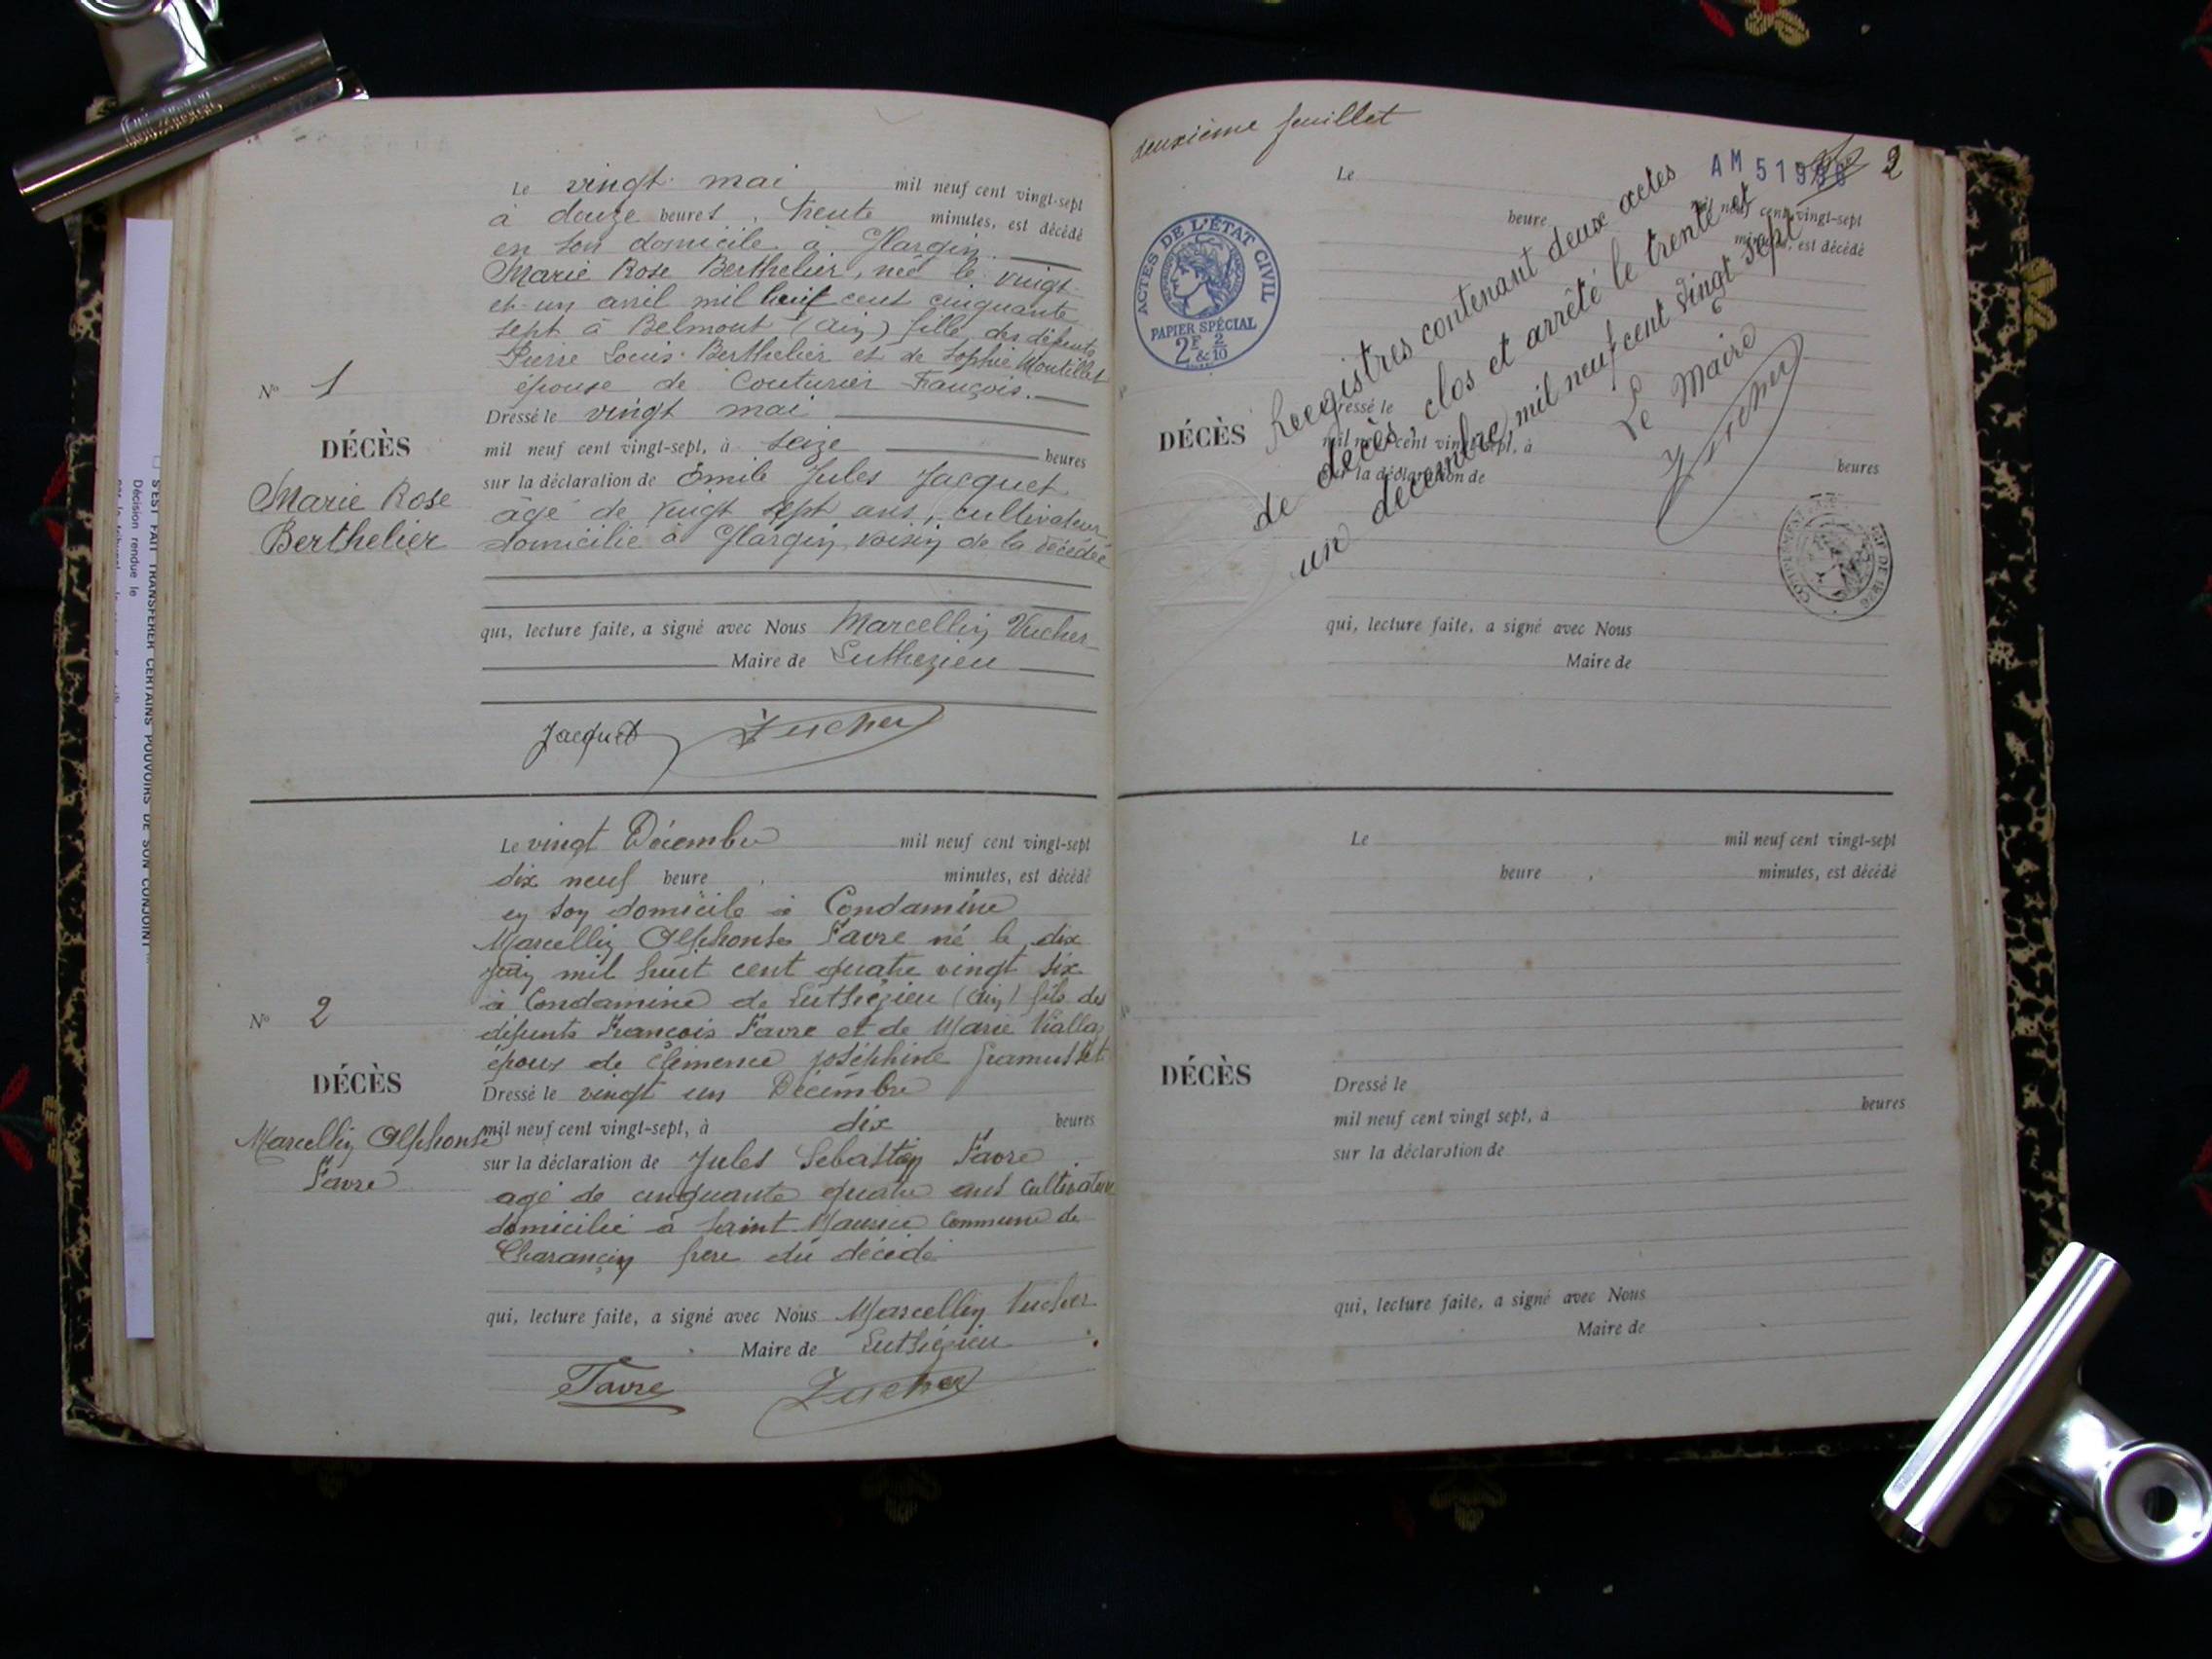 Le vingt mai mil neuf cent vingt-sept
à douze heures, trente minutes, est décédé
en son domicile à Glargin
Marie Rose Berthelier, née le vingt
et un avril mil huit cent cinquante
sept à Belmont (Ain) fille des défunts
Pierre Louis Berthelier et de Sophie Montillet
épouse de Couturier François.
Dressé le vingt mai
mil neuf cent vingt-sept, à seize heures
sur la déclaration de Emile Jules Jacquet
âgé de vingt sept ans, cultivateur
domicilié à Glargin, voisin de la décédée
qui, lecture faite, a signé avec Nous Marcellin Vucher
Maire de Luthezieu
Jacquet Vucher
N° 1
DÉCÈS
Marie Rose
Berthelier
Le vingt Décembre mil neuf cent vingt-sept
dix neuf heure, minutes, est décédé
en son domicile à Condamine
Marcellin Alphonse Favre né le dix
juin mil huit cent quatre vingt six
à Condamine de Luthézieu (Ain) fils des
défunts François Favre et de Marie
époux de Clémence Joséphine
Dressé le vingt un Décembre
mil neuf cent vingt-sept, à dix heures
sur la déclaration de Jules Sebastien Favre
agé de cinquante quatre ans cultivateur
domicilié à Saint Maurice Commune de
Charancin frere du décédé
qui, lecture faite, a signé avec Nous Marcellin Vucher
Maire de Luthézieu
Favre Vucher
N° 2
DÉCÈS
Marcellin Alphonse
Favre
deuxième feuillet
AM 51
2
Le mil neuf cent vingt-sept
heure minutes, est décédé
ACTES DE L'ÉTAT CIVIL
PAPIER SPÉCIAL
2F 2/10
&
Registres contenant deux actes
de décès, clos et arrêté le trente et
un décembre, mil neuf cent vingt sept
Le Maire
Vucher
DÉCÈS
Dressé le
mil neuf cent vingt-sept, à heures
sur la déclaration de
qui, lecture faite, a signé avec Nous
Maire de
Le mil neuf cent vingt-sept
heure, minutes, est décédé
DÉCÈS
Dressé le
mil neuf cent vingt sept, à heures
sur la déclaration de
qui, lecture faite, a signé avec Nous
Maire de
S'EST FAIT TRANSFÉRER CERTAINS POUVOIRS DE SON CONJOINT
Décision rendue le